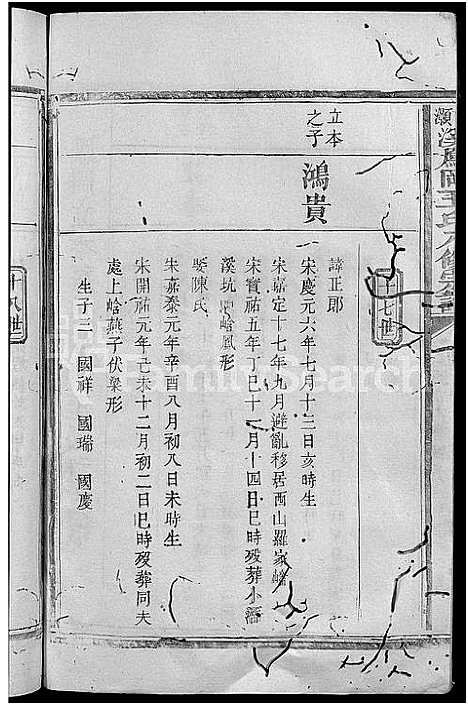 灝溪鳳岡王氏六修宗譜
十七世
立本之子
鴻貴
諱正郎
宋慶元六年七月十三日亥時生
宋嘉定十七年九月避亂移居西山羅家嶺
宋寶祐五年丁巳十一月十四日巳時歿葬小酒
溪坑 峆鳳形
娶陳氏
宋嘉泰元年辛酉八月初八日未時生
宋開祐元年己未十二月初二日巳時歿葬同夫
處上峆燕子伏梁形
生子三 國祥 國瑞 國慶
十八世
FamilySearch